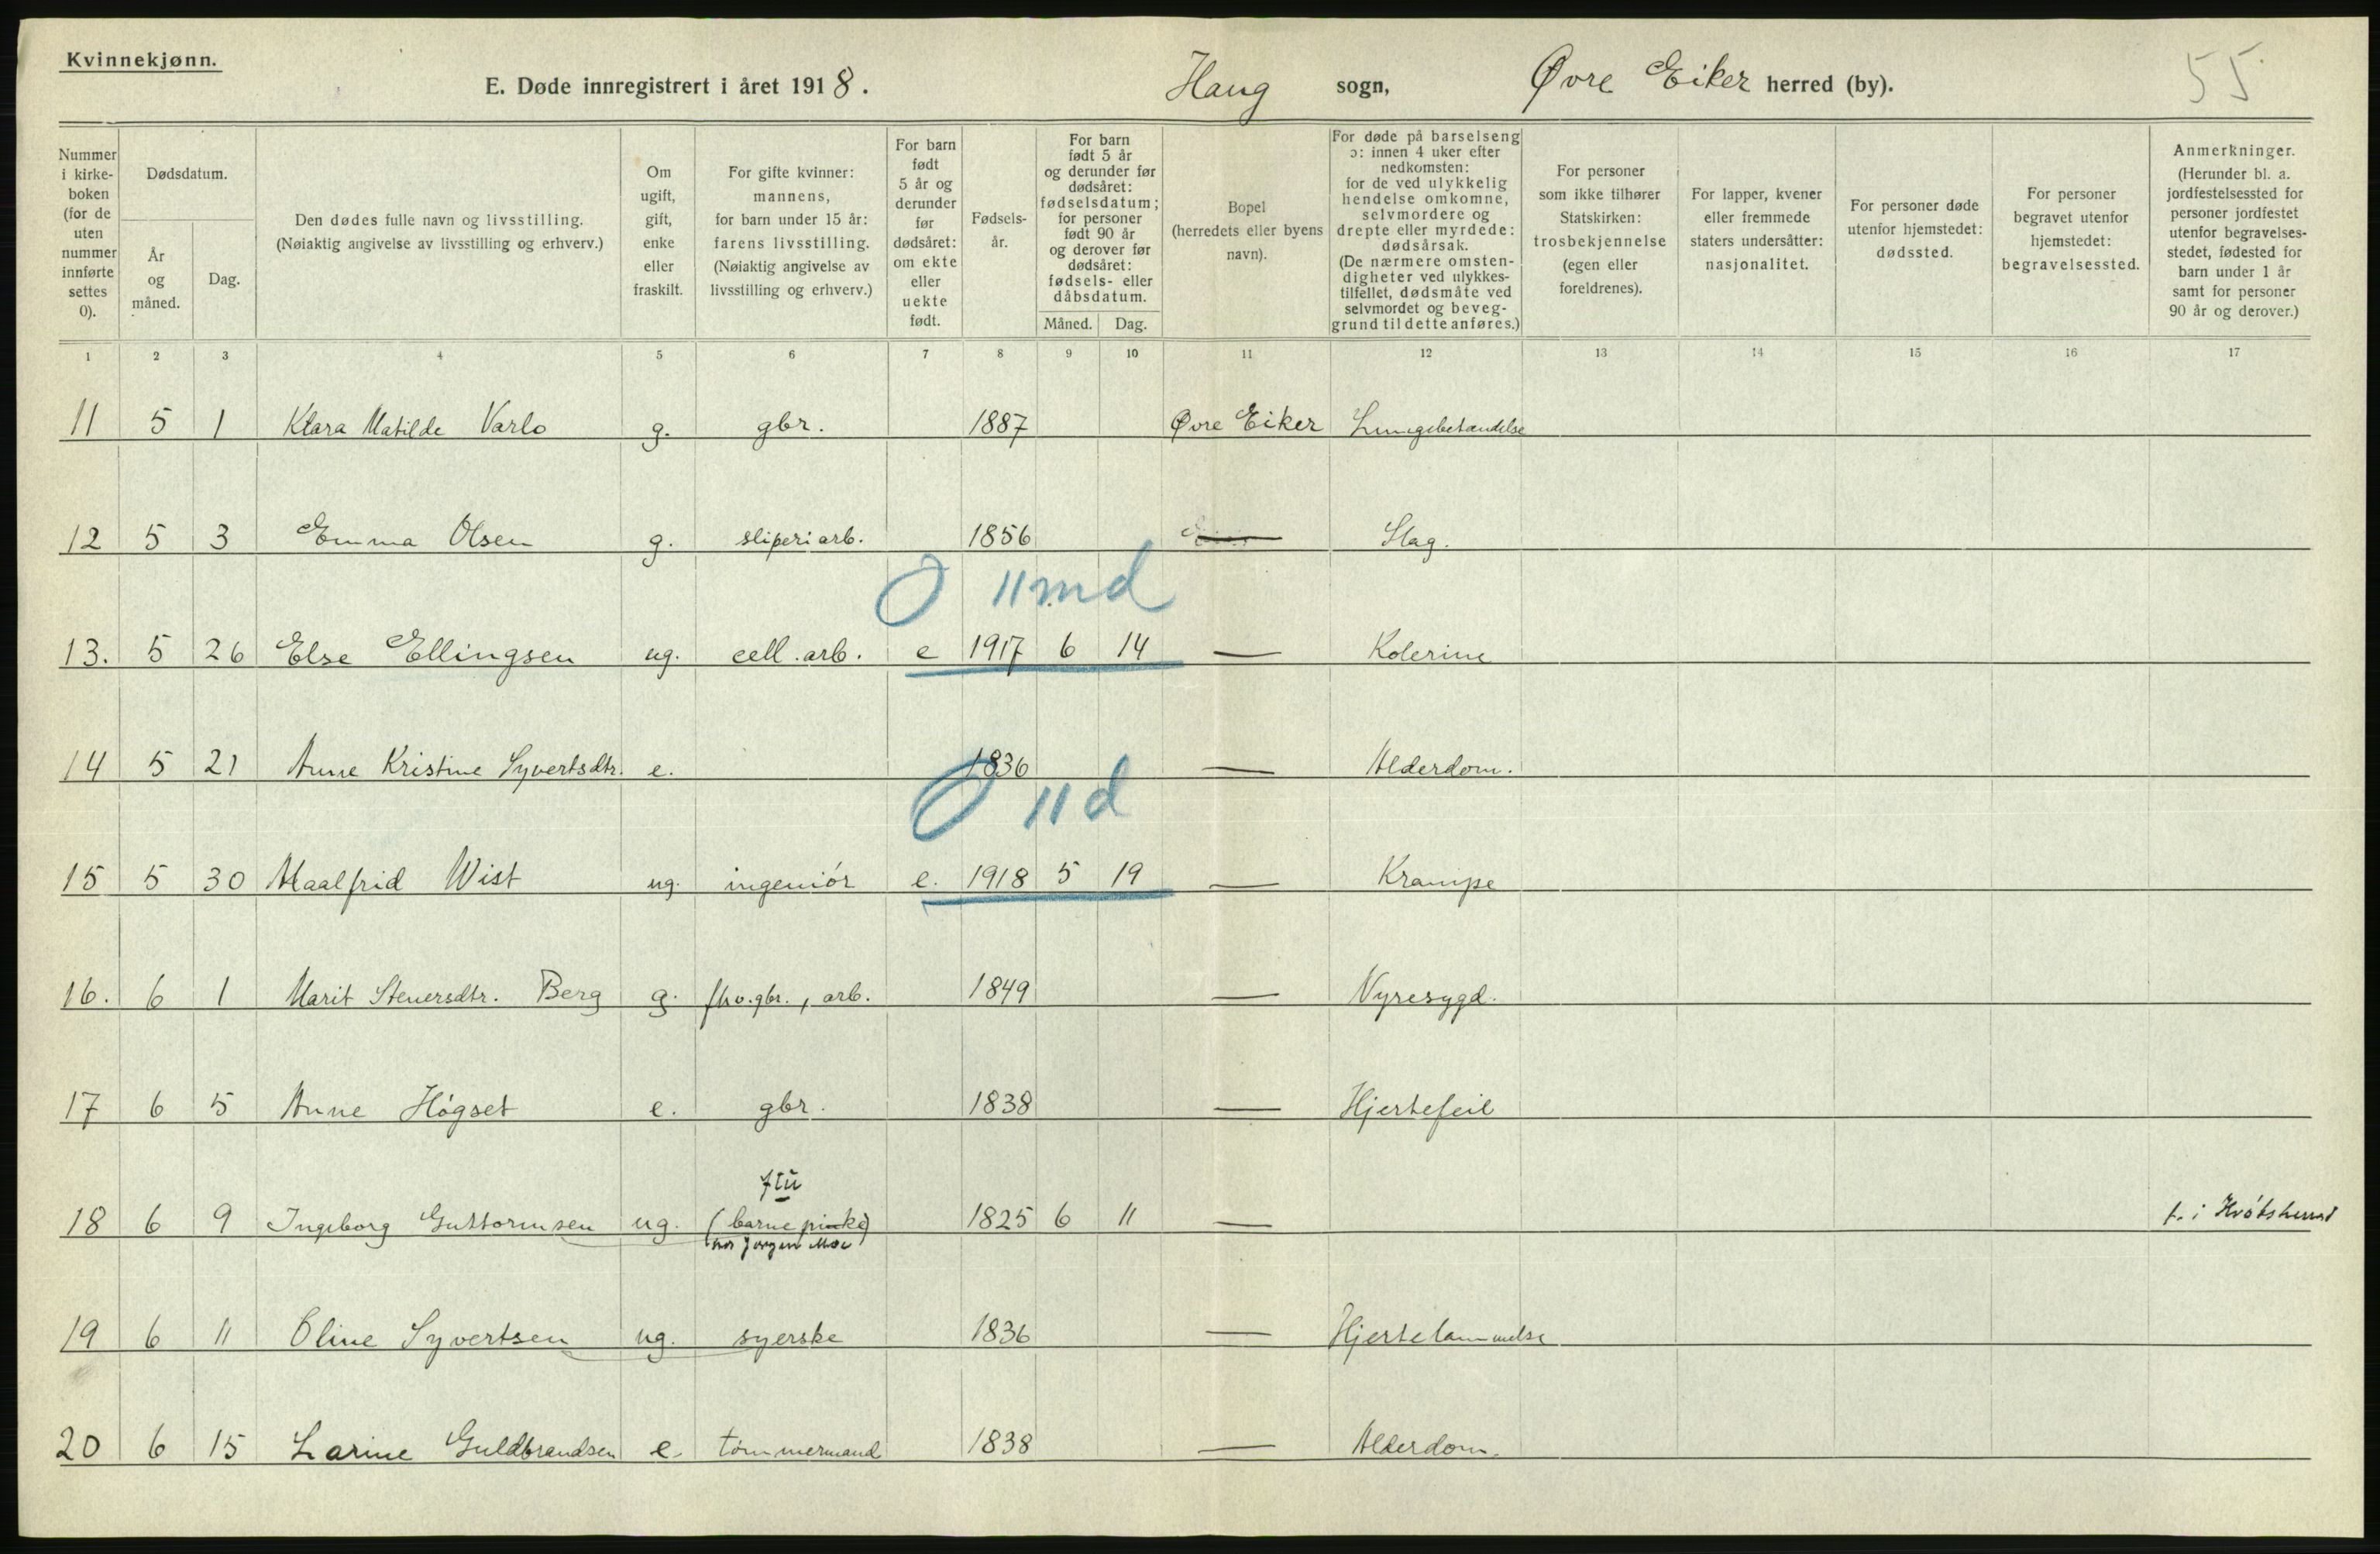 Kvinnekjønn.
E. Døde innregistrert i året 1918. Haug sogn, Øvre Eiker herred (by). 55
Nummer i kirke-boken (for de uten nummer innførte settes 0).
Dødsdatum.
År og måned.
Dag.
Den dødes fulle navn og livsstilling. (Nøiaktig angivelse av livsstilling og erhverv.)
Om ugift, gift, enke eller fraskilt.
For gifte kvinner: mannens, for barn under 15 år: farens livsstilling. (Nøiaktig angivelse av livsstilling og erhverv.)
For barn født 5 år og derunder før dødsåret: om ekte eller uekte født.
Fødsels-år.
For barn født 5 år og derunder før dødsåret: fødselsdatum; for personer født 90 år og derover før dødsåret: fødsels- eller dåbsdatum.
Måned. Dag.
Bopel (herredets eller byens navn).
For døde på barselseng ɔ: innen 4 uker efter nedkomsten: for de ved ulykkelig hendelse omkomne, selvmordere og drepte eller myrdede: dødsårsak. (De nærmere omsten-digheter ved ulykkes-tilfellet, dødsmåte ved selvmordet og beveg-grund til dette anføres.)
For personer som ikke tilhører Statskirken: trosbekjennelse (egen eller foreldrenes).
For lapper, kvener eller fremmede staters undersåtter: nasjonalitet.
For personer døde utenfor hjemstedet: dødssted.
For personer begravet utenfor hjemstedet: begravelsessted.
Anmerkninger. (Herunder bl. a. jordfestelsessted for personer jordfestet utenfor begravelses-stedet, fødested for barn under 1 år samt for personer 90 år og derover.)
1 2 3 4 5 6 7 8 9 10 11 12 13 14 15 16 17
11 5 1 Klara Matilde Varlo g. gbr. 1887 Øvre Eiker Lungebetændelse
12 5 3 Emma Olsen g. sliperiarb. 1856 — Slag.
0 11 md
13. 5 26 Else Ellingsen ug. cell. arb. e 1917 6 14 — Kolerine
14 5 21 Anne Kristine Syvertsdtr. e. 1836 — Alderdom.
0 11 d
15 5 30 Maalfrid Wist ug. ingeniór e. 1918 5 19 — Krampe
16. 6 1 Marit Steversdtr. Berg g. fhv. gbr., arb. 1849 — Nyresygd.
17 6 5 Anne Högset e. gbr. 1838 — Hjertefeil
18 6 9 Ingeborg Guttormsen ug. (barnepike) 1825 6 11 — f. i
hos Jørgen Moe
19 6 11 Oline Syvertsen ug. syerske 1836 — Hjertelammelse
20 6 15 Larine Guldbrandsen e. tømmermand 1838 — Alderdom.